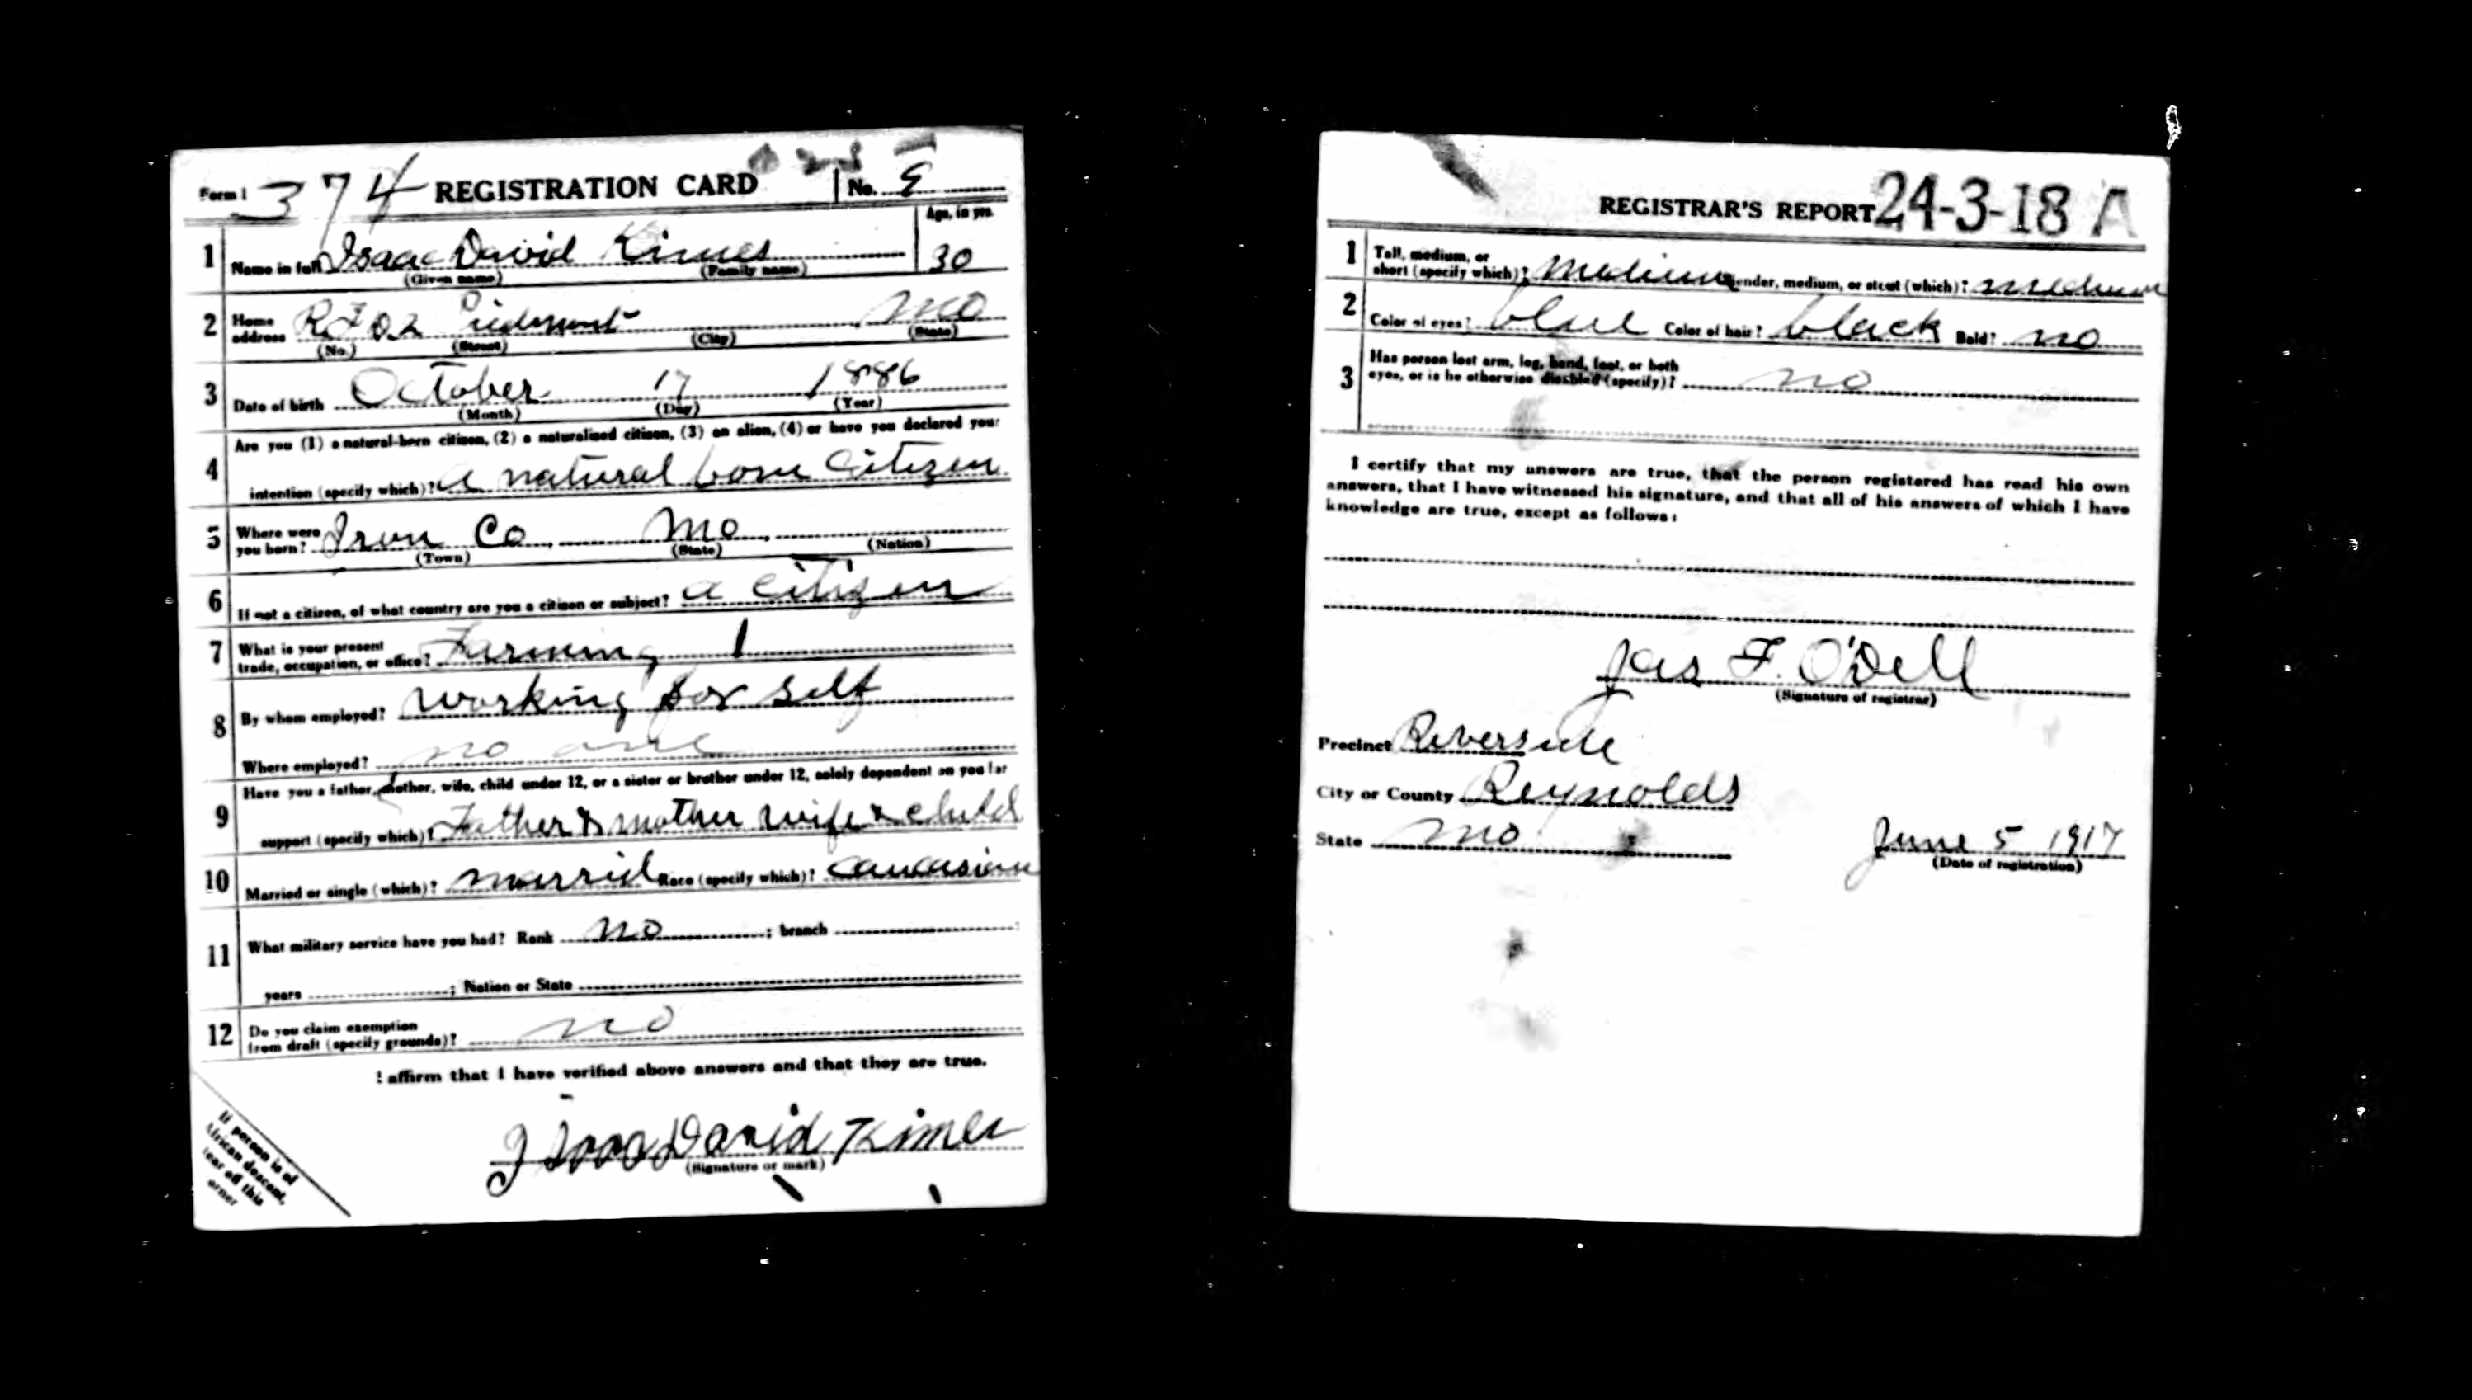 Form 1 374 REGISTRATION CARD No.
Age, in yrs.
1 Name in full Isaac David Kimes 30
(Given name) (Family name)
2 Home address R F D 2 Piedmont Mo
(No.) (Street) (City) (State)
3 Date of birth October 17 1886
(Month) (Day) (Year)
4 Are you (1) a natural-born citizen, (2) a naturalized citizen, (3) an alien, (4) or have you declared your
intention (specify which)? a natural born Citizen
5 Where were you born? Iron Co Mo
(Town) (State) (Nation)
6 If not a citizen, of what country are you a citizen or subject? a citizen
7 What is your present trade, occupation, or office? Farming 1
8 By whom employed? working for self
Where employed? no
9 Have you a father, mother, wife, child under 12, or a sister or brother under 12, solely dependent on you for
support (specify which)? Father & mother wife & child
10 Married or single (which)? married Race (specify which)? caucasian
11 What military service have you had? Rank no ; branch
years ; Nation or State
12 Do you claim exemption from draft (specify grounds)? no
I affirm that I have verified above answers and that they are true.
Isaac David Kimes
(Signature or mark)
If person is of
African descent,
tear off this
corner
REGISTRAR'S REPORT 24-3-18 A
1 Tall, medium, or short (specify which)? Medium Slender, medium, or stout (which)? medium
2 Color of eyes? blue Color of hair? black Bald? no
3 Has person lost arm, leg, hand, foot, or both
eyes, or is he otherwise disabled (specify)? no
I certify that my answers are true, that the person registered has read his own
answers, that I have witnessed his signature, and that all of his answers of which I have
knowledge are true, except as follows:
Jas F. O'Dell
(Signature of registrar)
Precinct Riverside
City or County Reynolds
State Mo June 5 1917
(Date of registration)